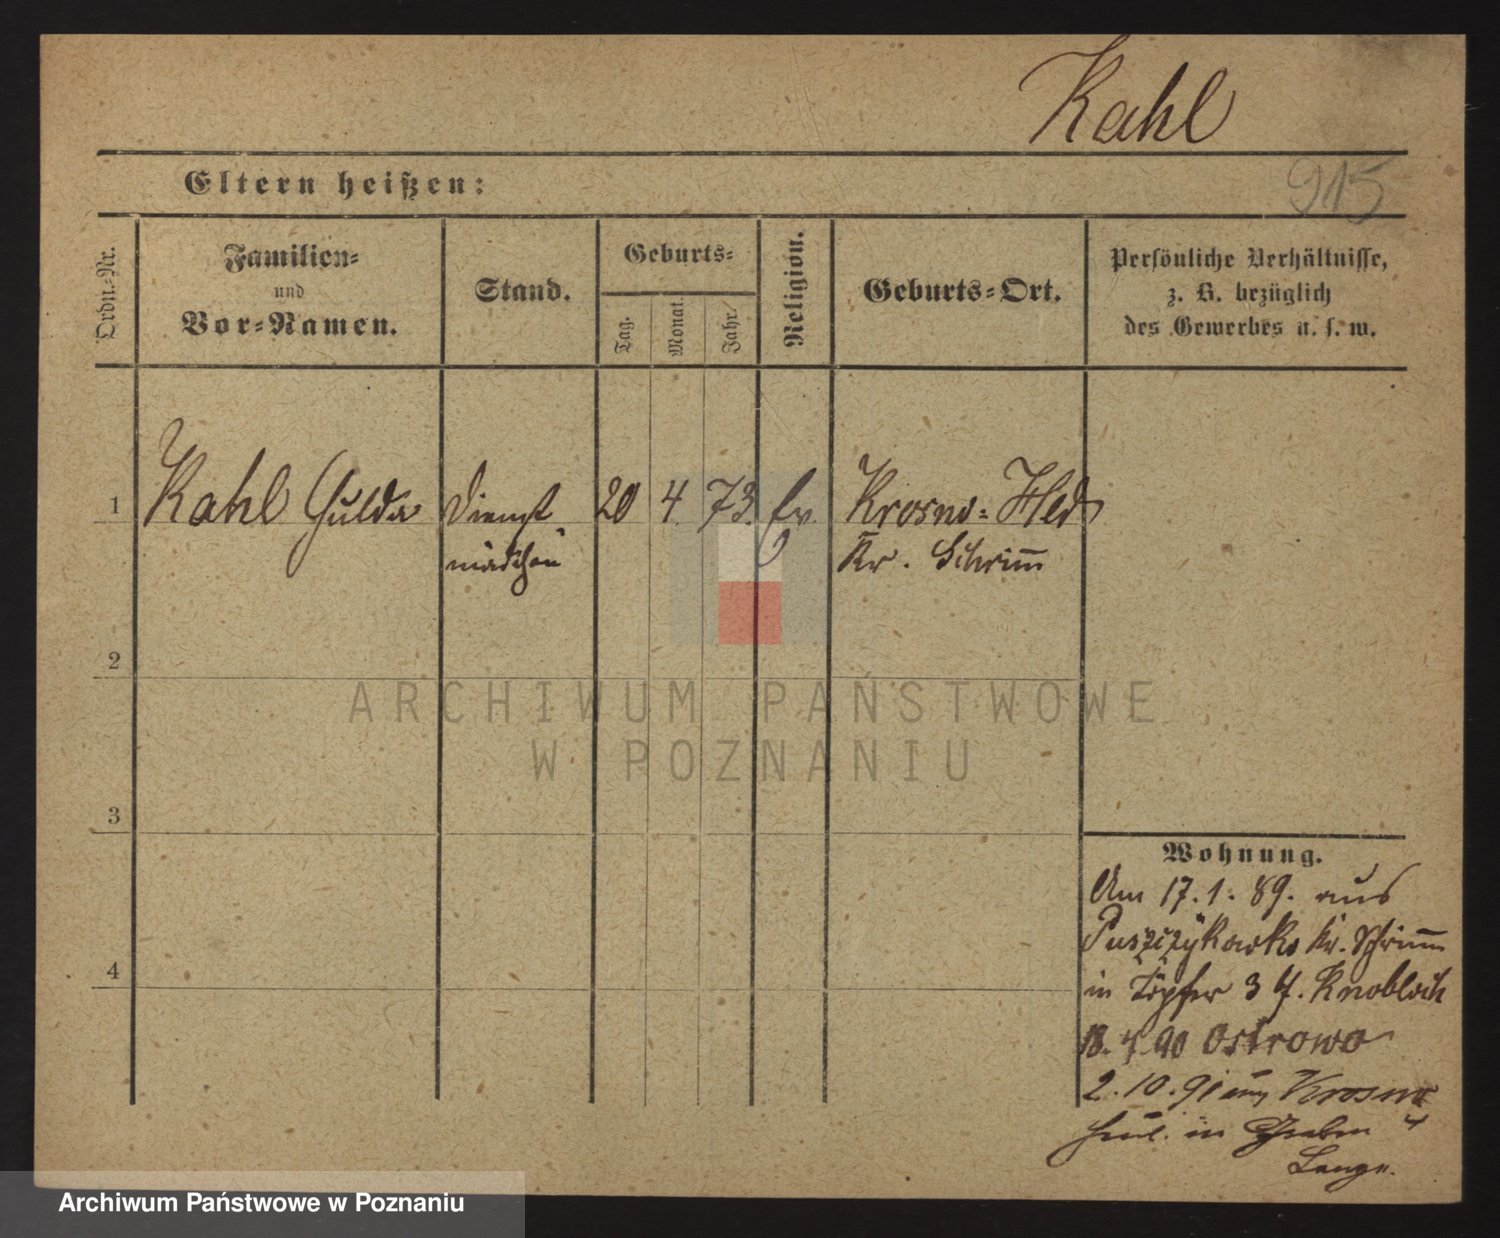 Kahl
915
Eltern heißen:
Ordn.-Nr.
Familien-
und
Vor-Namen.
Stand.
Geburts-
Tag.
Monat.
Jahr.
Religion.
Geburts-Ort.
Persönliche Verhältnisse,
z. B. bezüglich
des Gewerbes u. s. w.
1 Kahl Hulda Dienst 20 4. 73. Ev. Krosno-Hld
mädchen Kr. Schrim̄
2
3
4
Wohnung.
Am 17.1.89. aus
Puszczykowko Kr. Schrim̄
in Töpfer 3 Knobloch
18.4.90 Ostrowo
2.10.91 Krosno
in Graben 4
Lange.
ARCHIWUM PAŃSTWOWE
W POZNANIU
Archiwum Państwowe w Poznaniu